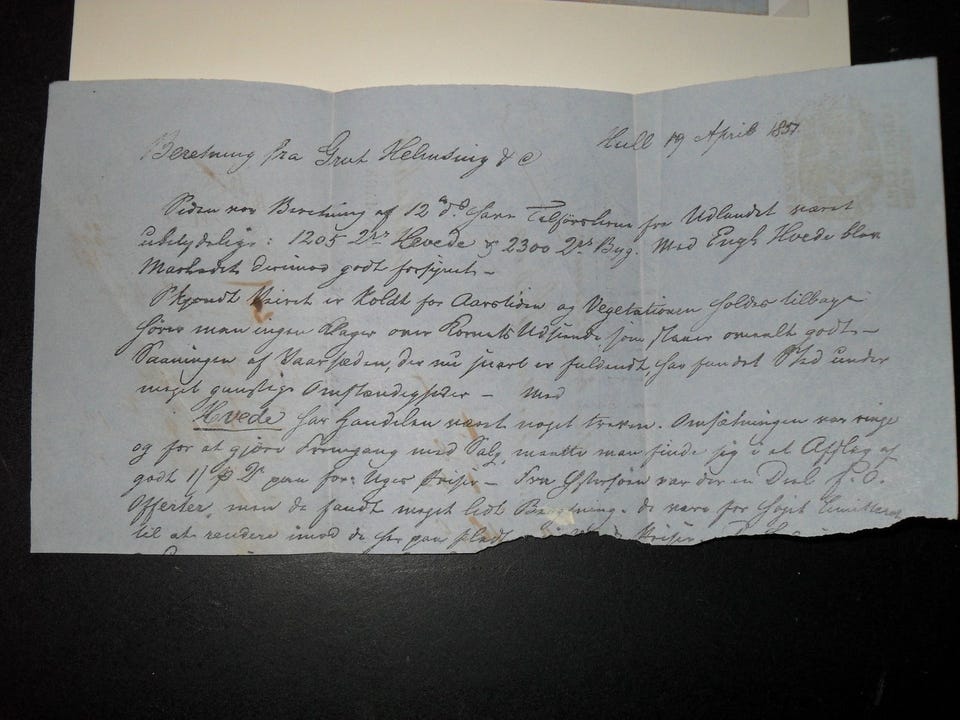 Beretning fra Grut Helmsing & C
Hull 19 April 1851
Siden vor Beretning af 12 ds have Tilförslerne fra Udlandet været
ubetydelige: 1205 Qrs Hvede & 2300 Qrs Byg. Med Engl Hvede blev
Markedet derimod godt forsynet –
Skjøndt Veiret er koldt for Aarstiden og Vegetationen holdes tilbage
hører man ingen Klager over Kornets Udseende som staaer overalt godt –
Saaningen af Vaarsæden, der nu snart er fuldendt, har fundet Sted under
meget gunstige Omstændigheder – Med
Hvede har Handelen været noget trykken. Omsætningen var ringe
og for at gjøre Fremgang med Salg, maatte man finde sig i et Afslag af
godt 1/ pr Qr paa forr: Uges Priser – Fra Østersöen var der en Deel F.O.
Offerter, men de fandt meget lidt Beregning – de vare for høiet limitteret
til at rendere imod de her paa Stedet Priser